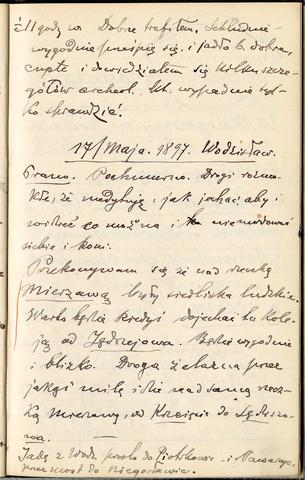 i 11 godz w Dobre trafiłem, schludnie
wygodnie prześpię się, i jadło b. dobre,
czyste i dowiedziałem się kilku szcze-
gółów archeol. kt. wypadnie tyl-
ko sprawdzić.
17/Maja. 1897. Wodzisław.
Rano. Pochmurno. Drogi rozmo-
kłe, że medytuję jak jechać aby i
zwiedzić co można i nie zmordować
siebie i koni.
Przekonywam się że nad rzeką
Mierzawą były siedliska ludzkie.
Warto będzie kiedyś dojechać tu kole-
ją od Jędrzejowa. Będzie wygodnie
i blizko. Droga żelazna przez
jakąś milę idzie nad samą rzecz-
ką Mierzawą, od Krzcięcic do Sędziszo-
wa.
Jadę z Wodz. prosto do Piotrkowic - i Nawarzyc,
przez most do Niegosławic.